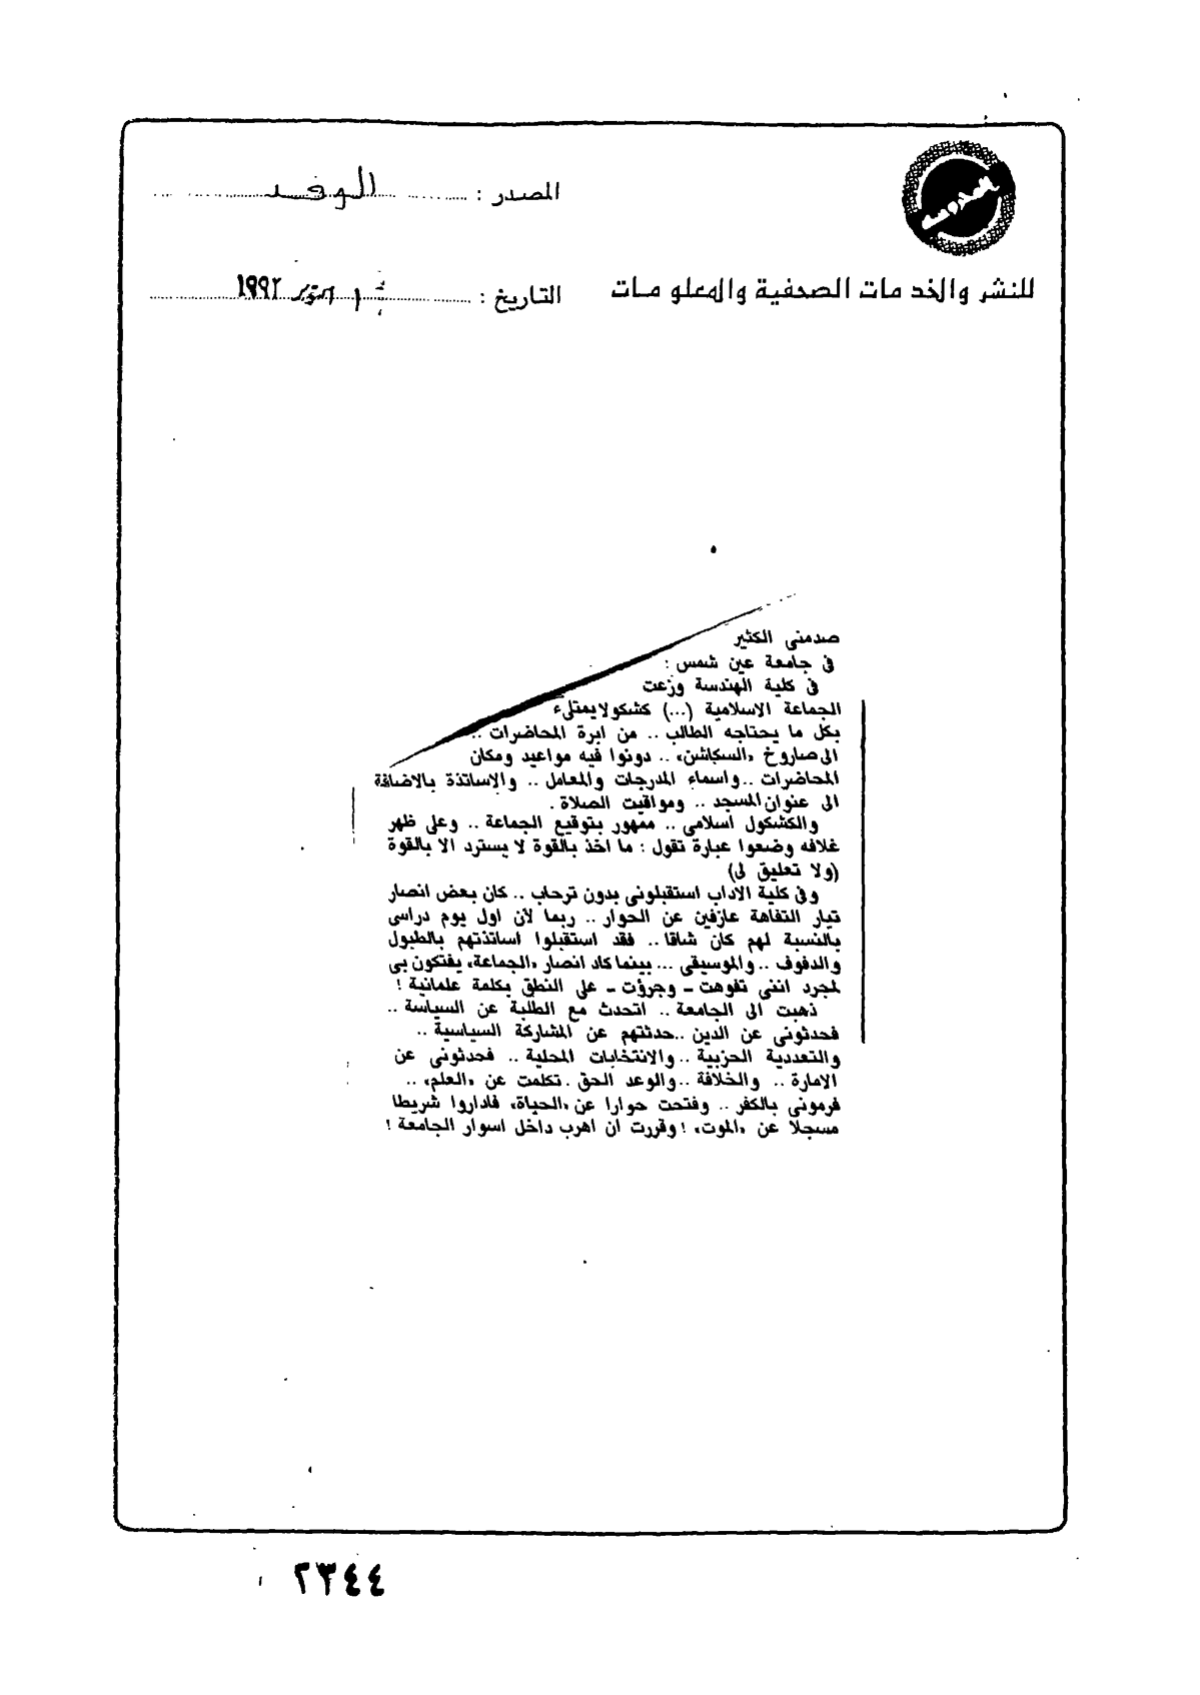 المصدر : الوفد
للنشر والخدمات الصحفية والمعلومات
التاريخ : ١ اكتوبر ١٩٩٢
صدمنى الكثير
فى جامعة عين شمس :
فى كلية الهندسة وزعت
الجماعة الاسلامية (...) كشكولا يمتلىء
بكل ما يحتاجه الطالب .. من ابرة المحاضرات ..
الى صاروخ «السكاشن» .. دونوا فيه مواعيد ومكان
المحاضرات .. واسماء المدرجات والمعامل .. والاساتذة بالاضافة
الى عنوان المسجد .. ومواقيت الصلاة .
والكشكول اسلامى .. ممهور بتوقيع الجماعة .. وعلى ظهر
غلافه وضعوا عبارة تقول : ما اخذ بالقوة لا يسترد الا بالقوة
(ولا تعليق لى)
وفى كلية الاداب استقبلونى بدون ترحاب .. كان بعض انصار
تيار التفاهة عازفين عن الحوار .. ربما لأن اول يوم دراسى
بالنسبة لهم كان شاقا .. فقد استقبلوا اساتذتهم بالطبول
والدفوف .. والموسيقى ... بينما كاد انصار «الجماعة» يفتكون بى
لمجرد اننى تفوهت - وجرؤت - على النطق بكلمة علمانية !
ذهبت الى الجامعة .. اتحدث مع الطلبة عن السياسة ..
فحدثونى عن الدين .. حدثتهم عن المشاركة السياسية ..
والتعددية الحزبية .. والانتخابات المحلية .. فحدثونى عن
الامارة .. والخلافة .. والوعد الحق . تكلمت عن «العلم» ..
فرمونى بالكفر .. وفتحت حوارا عن «الحياة» فاداروا شريطا
مسجلا عن «الموت» ! وقررت ان اهرب داخل اسوار الجامعة !
٢٣٤٤